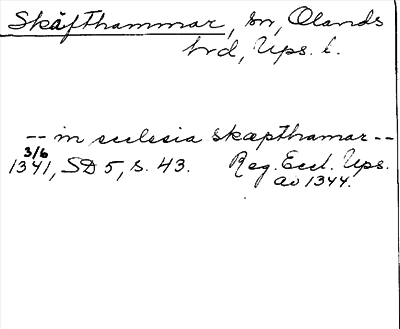 Skäfthammar, sn, Olands
hrd, Ups. l.
-- in ecclesia skæpthamar --
3/6
1341, SD 5, s. 43. Reg. Eccl. Ups.
av 1344.